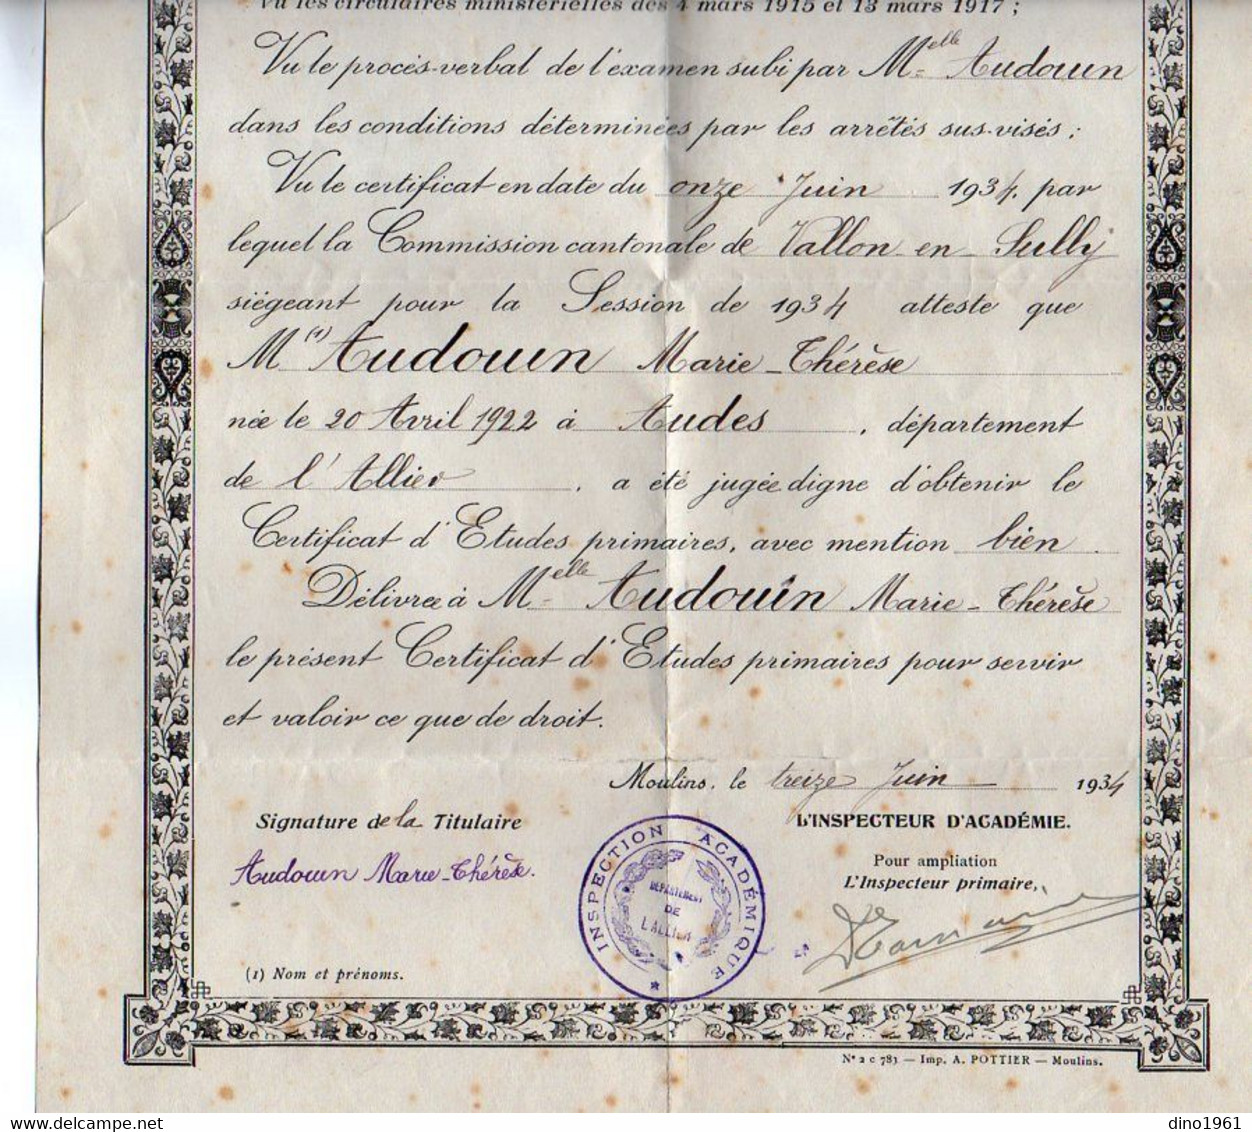 Vu les circulaires ministérielles des 4 mars 1915 et 13 mars 1917 ;
Vu le procès-verbal de l'examen subi par Melle Audouin
dans les conditions déterminées par les arrêtés sus-visés ;
Vu le certificat en date du onze Juin 1934, par
lequel la Commission cantonale de Vallon en Sully
siégeant pour la Session de 1934 atteste que
M(1) Audouin Marie-Thérèse
née le 20 Avril 1922 à Audes, département
de l'Allier, a été jugée digne d'obtenir le
Certificat d'Etudes primaires, avec mention bien.
Délivré à Melle Audouin Marie-Thérèse
le présent Certificat d'Etudes primaires pour servir
et valoir ce que de droit.
Moulins, le treize Juin 1934
Signature de la Titulaire
L'INSPECTEUR D'ACADÉMIE.
Audouin Marie-Thérèse.
Pour ampliation
L'Inspecteur primaire,
INSPECTION ACADÉMIQUE
DÉPARTEMENT
DE
L'ALLIER
(1) Nom et prénoms.
N° 2 c 783 — Imp. A. POTTIER — Moulins.
dino1961